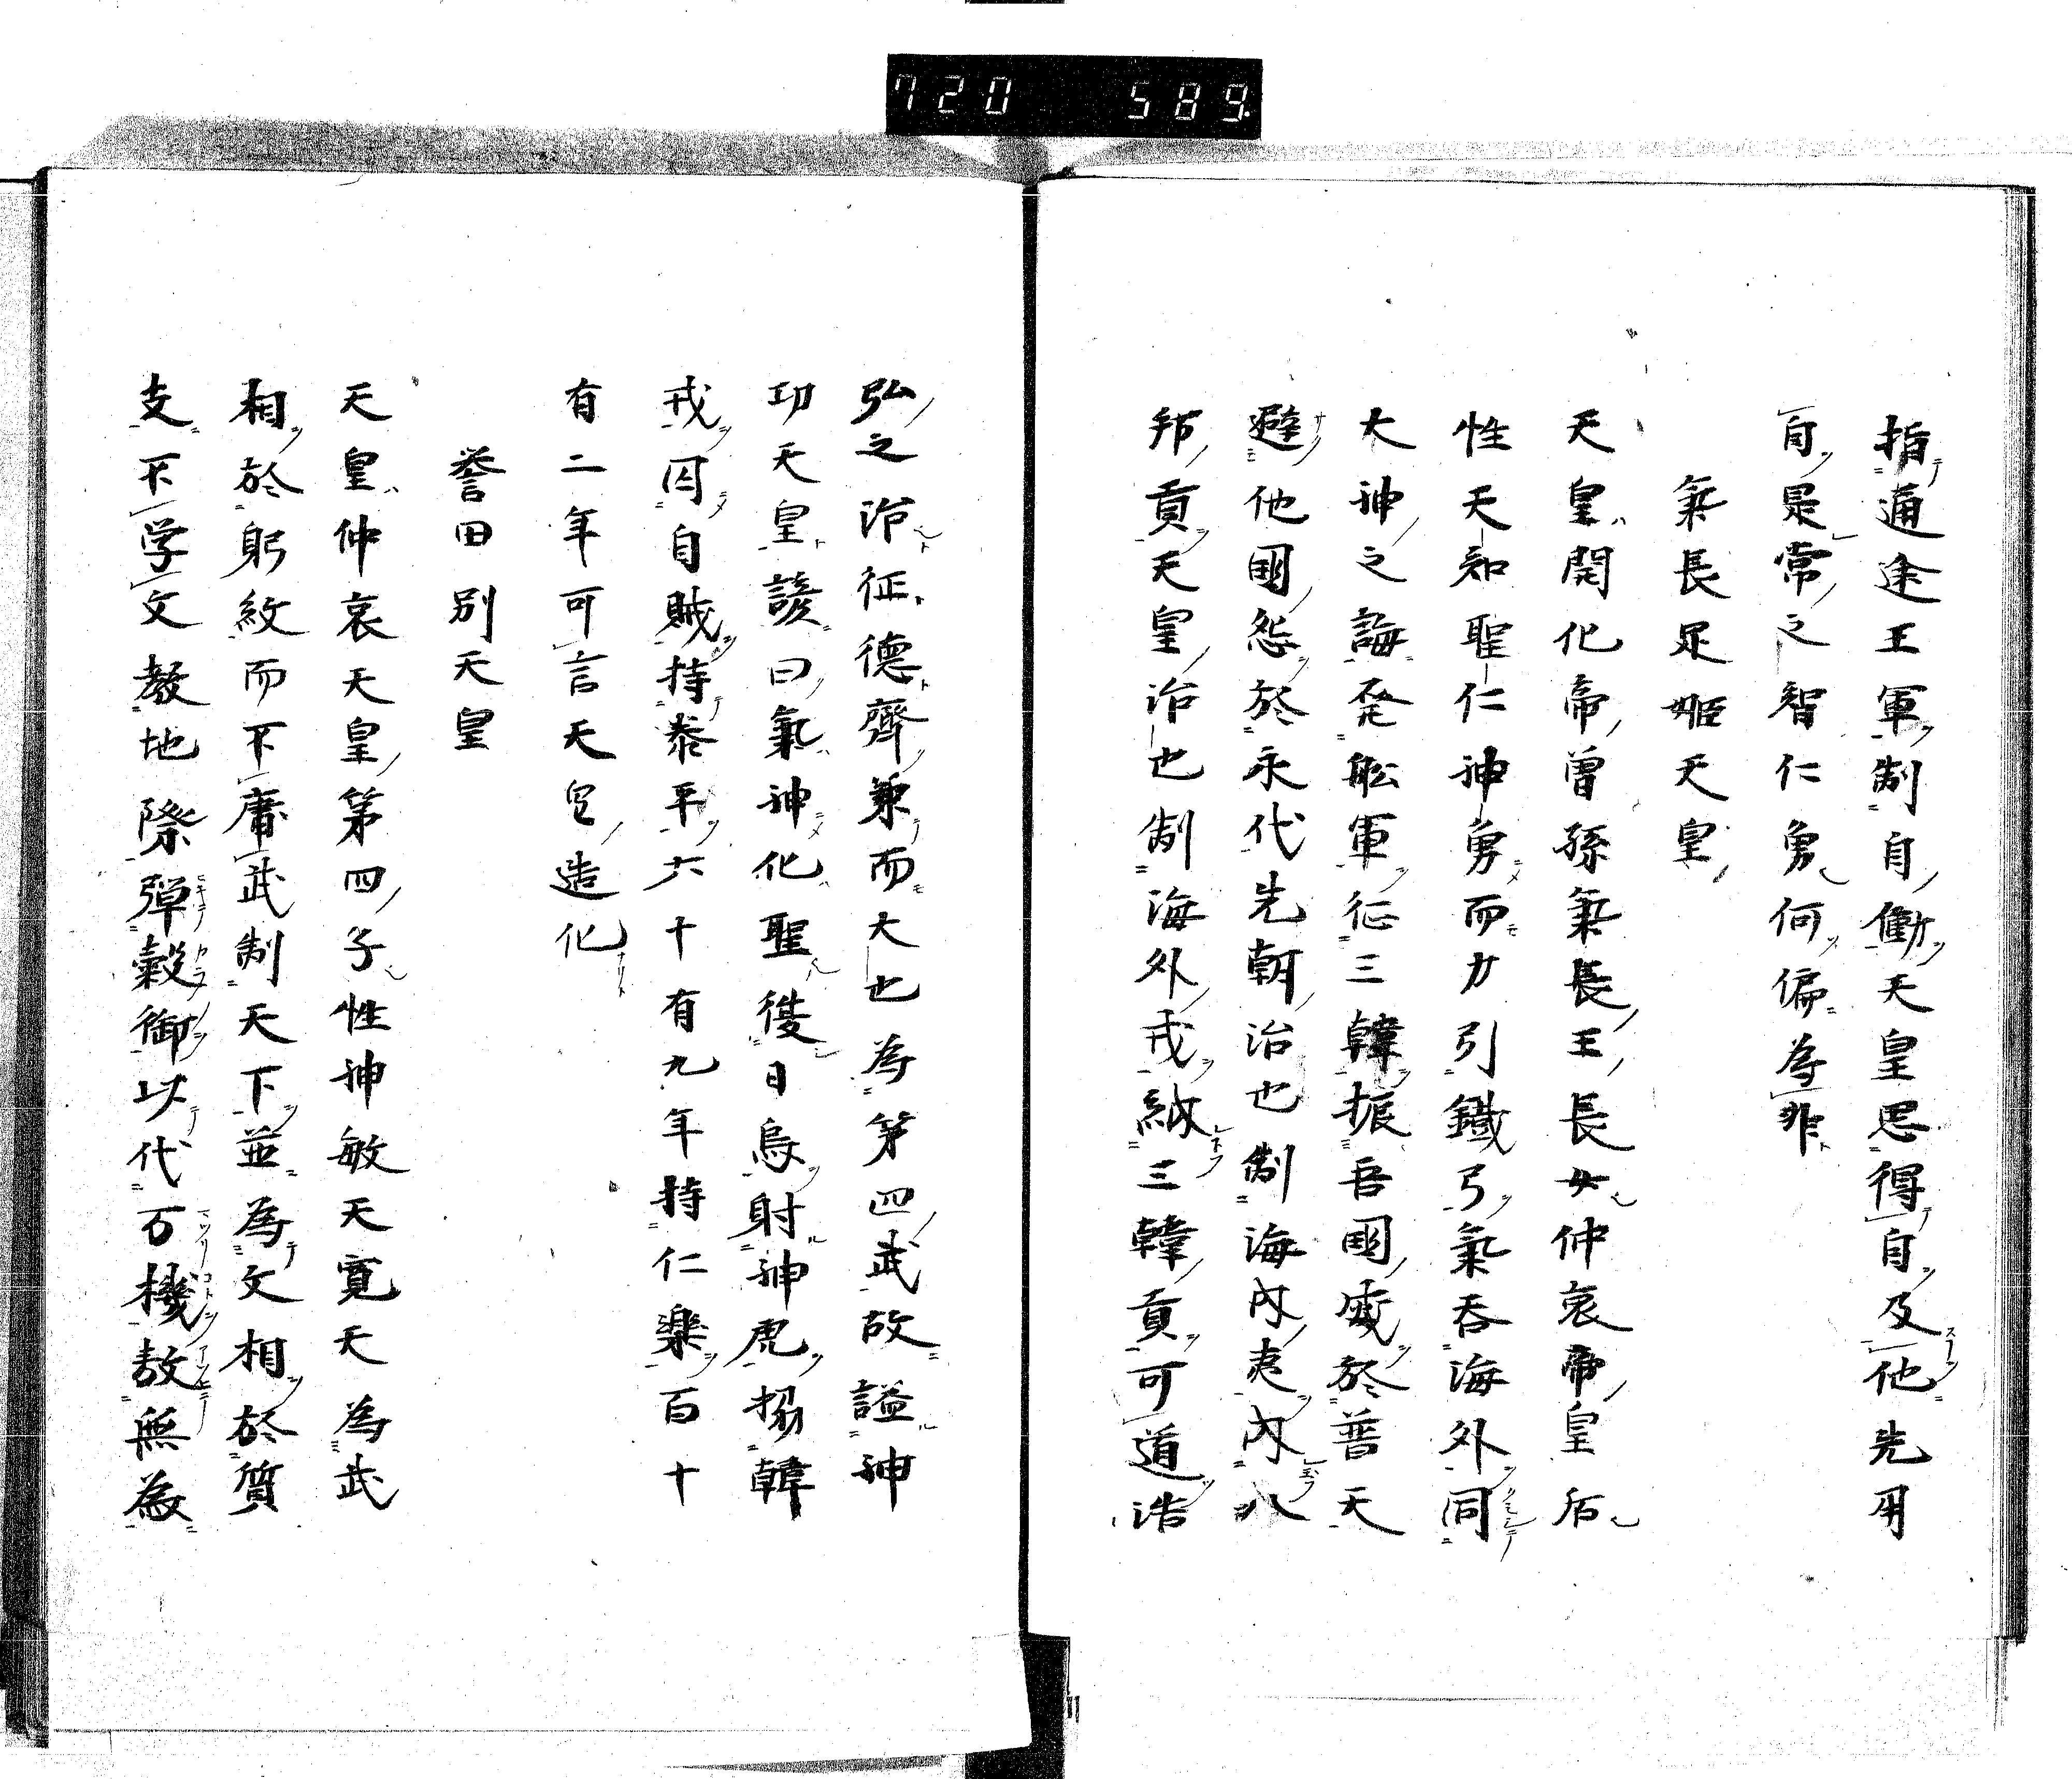 720 589
指通途王軍制自働天皇思得自及他先用
自是常之智仁勇何偏為非
氣長足姬天皇
天皇開化帝曽孫氣長王長女仲哀帝皇后
性天知聖仁神勇而力引鐵弓氣呑海外同
大神之誨発舩軍征三韓振吾國威於普天
避他國怨於永代先朝治也制海内夷内八
邦貢天皇治也制海外戎紈三韓貢可道浩
弘之治征德齊兼而大也為第四武故謚神
功天皇讃曰氣神化聖後日烏射神虎搦韓
戎囚自賊持泰平六十有九年持仁樂百十
有二年可言天皇造化
誉田別天皇
天皇仲哀天皇第四子性神敏天寛天為武
相於躬紋而不庸武制天下並為文相於質
支不学文教地際弾穀御以代万機敖無為